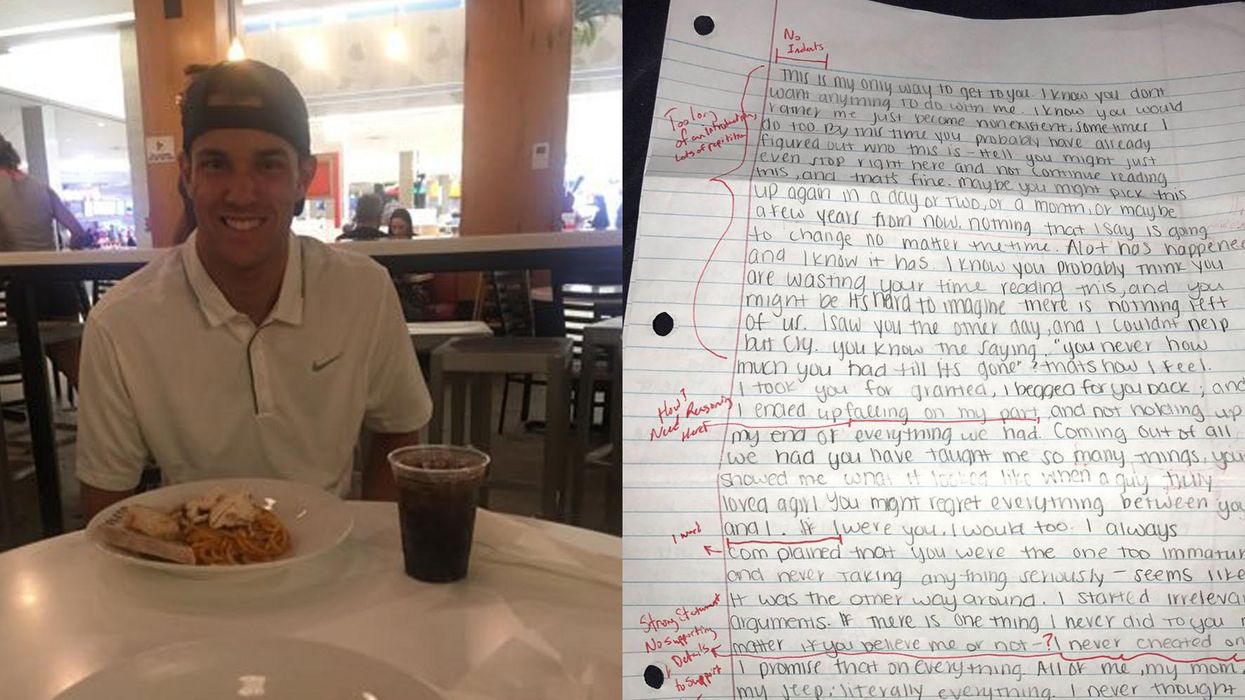 No
Indents
Too long
of an Introduction,
Lots of repetition
This is my only way to get to you. I know you dont
want anything to do with me. I know you would
rather me just become nonexistent, sometimes I
do too. By this time you probably have already
figured out who this is - Hell you might just
even stop right here and not continue reading
this, and thats fine. maybe you might pick this
up again in a day or two, or a month, or maybe
a few years from now. nothing that I say is going
to change no matter the time. Alot has happene
and I know it has. I know you probably think you
are wasting your time reading this, and you
might be. Its hard to imagine there is nothing left
of us. I saw you the other day, and I couldnt help
but cry. you know the saying, "you never how
much you had till its gone"? thats how I feel.
I took you for granted, I begged for you back, and
How?
Need Reasoning
Here!
I ended up falling on my part, and not holding up
my end of everything we had. Coming out of all
we had you have taught me so many things, you
showed me what it looked like when a guy truly
loved a girl. You might regret everything between yo
and I. If I were you, I would too. I always
1 word
complained that you were the one too immatur
and never taking anything seriously - seems like
it was the other way around. I started irreleva
arguments. If there is one thing I never did to you
Strong Statement
No supporting
Details
to support
matter if you believe me or not -? I never cheated on
I promise that on everything. All of me, my mom,
my jeep, literally everything. I never thought